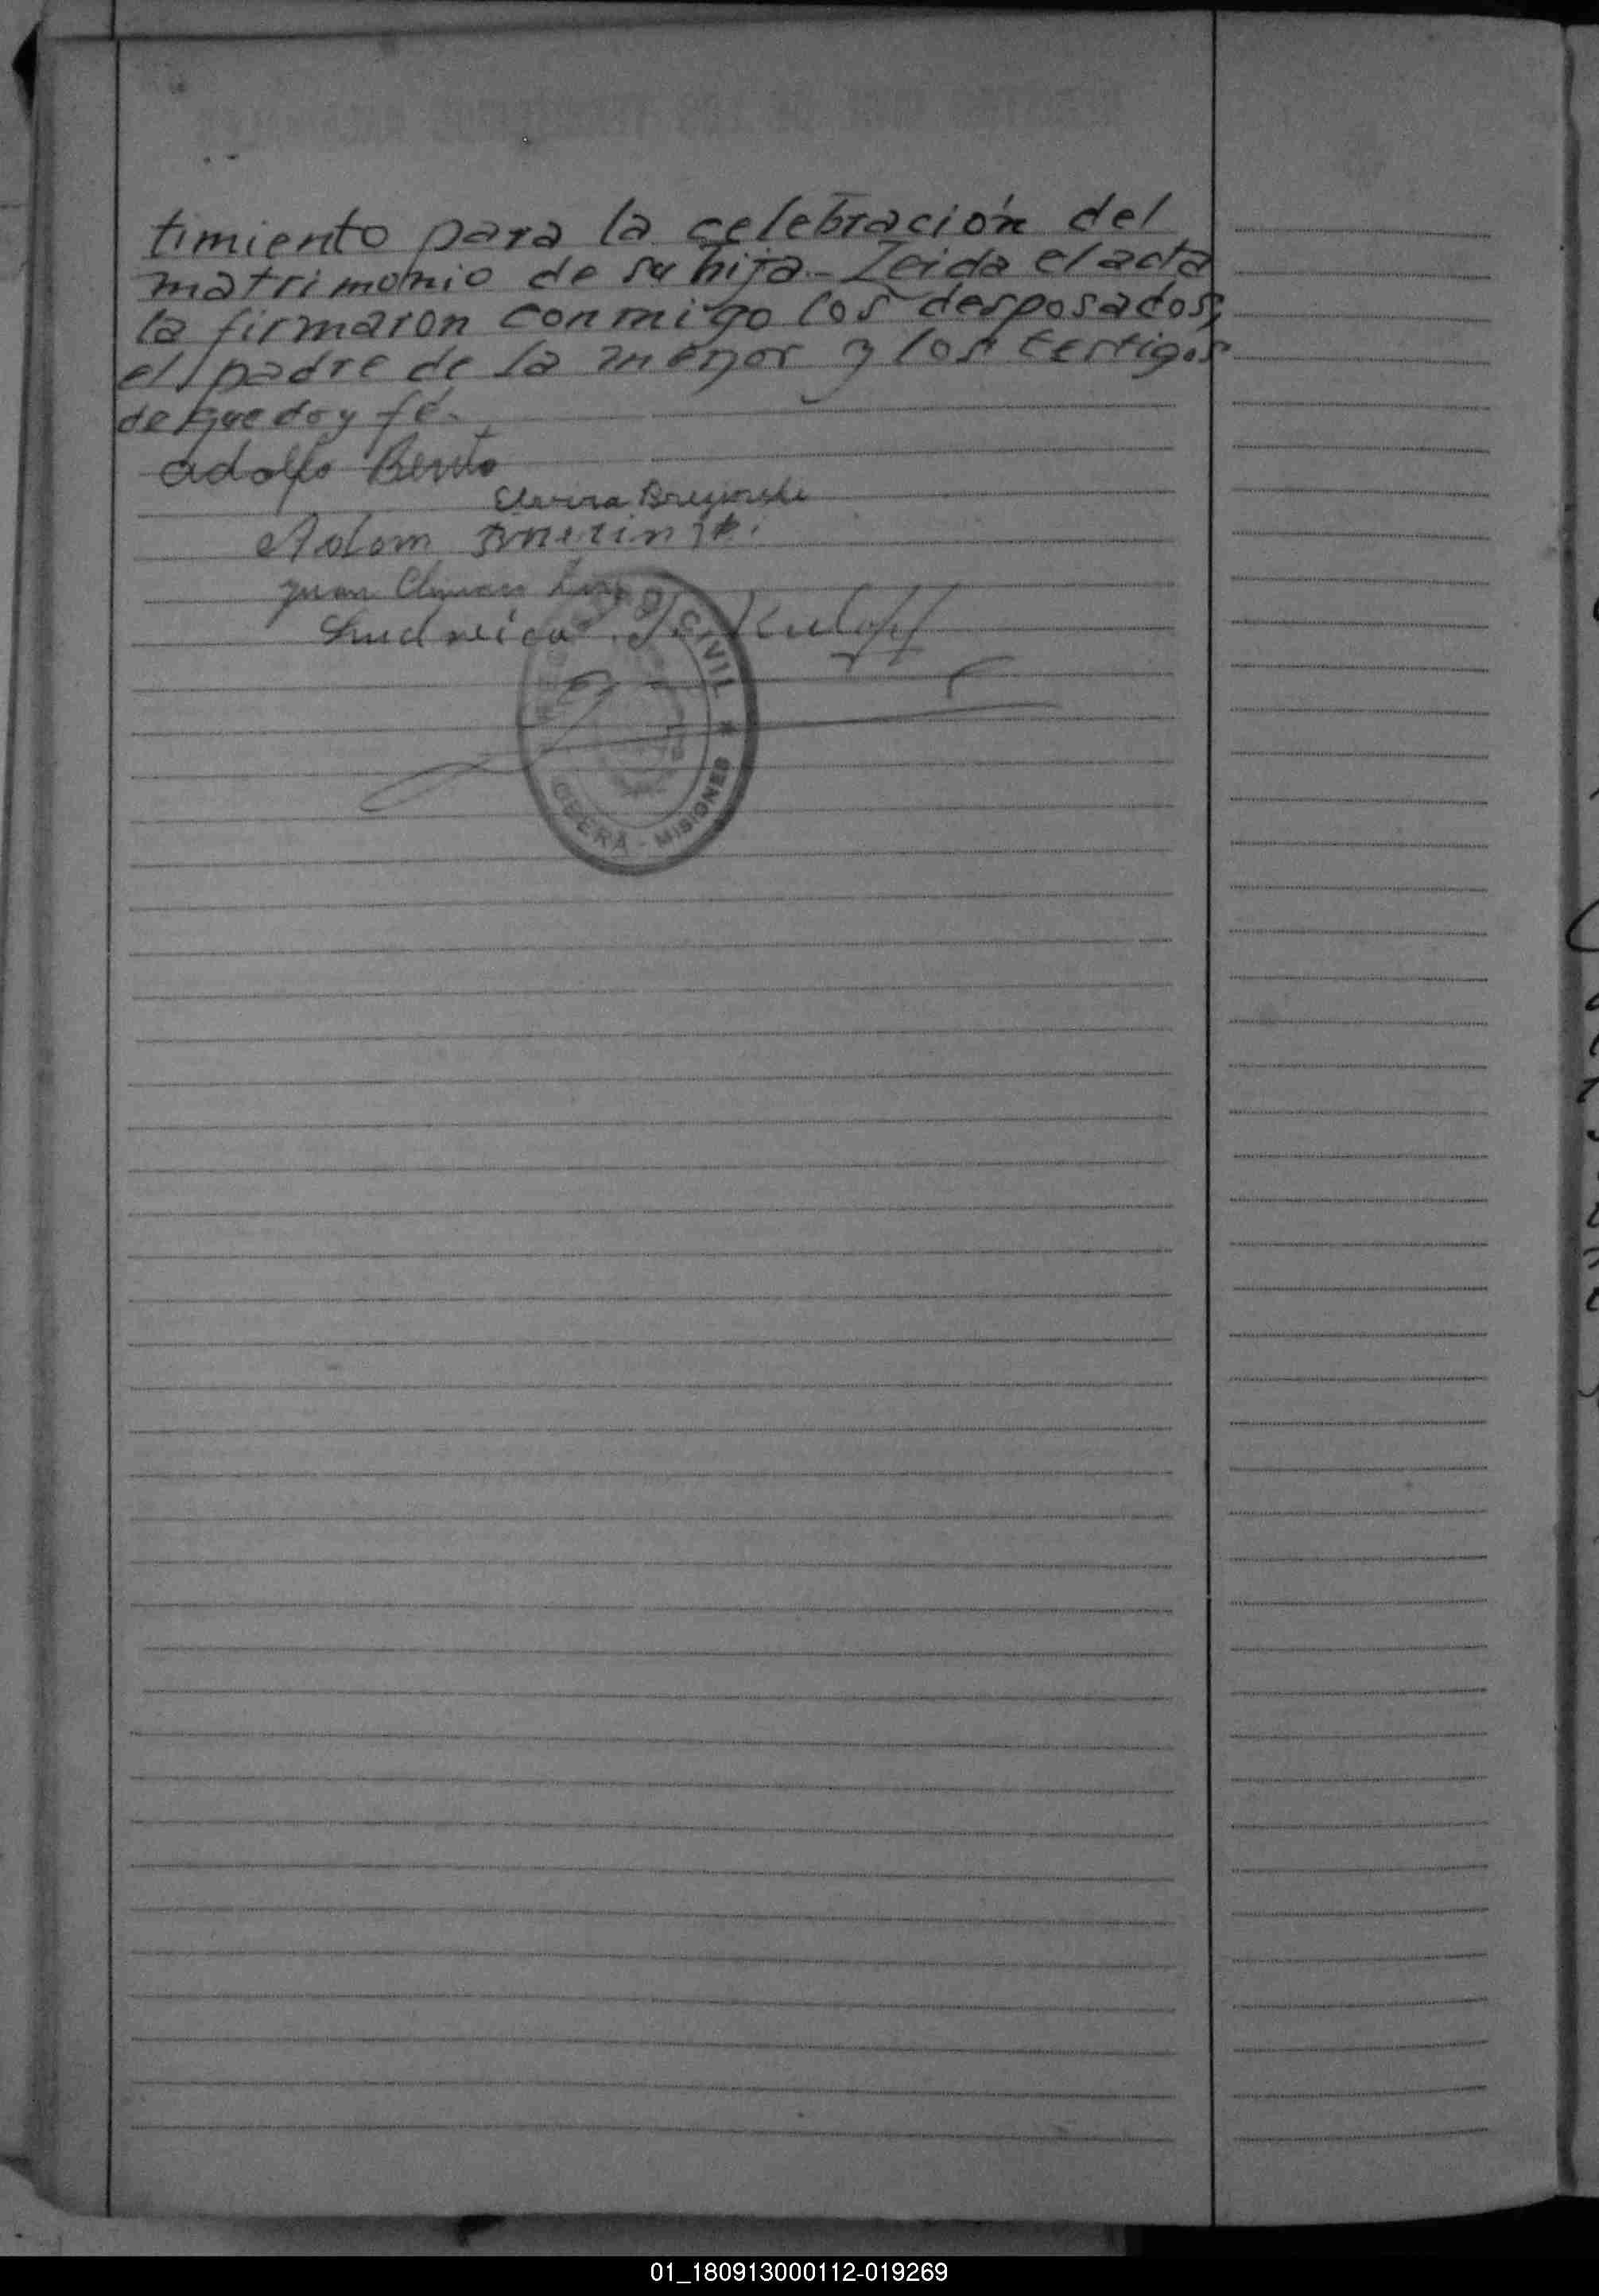 timiento para la celebración del
matrimonio de su hija.- Leida el acta
la firmaron conmigo los desposados,
el padre de la menor y los testigos
de que doy fé.-
Adolfo Benito
Elvira
Adam
Juan
Ludneica Kuloff
CIVIL
OBERÁ - MISIONES
01_180913000112-019269